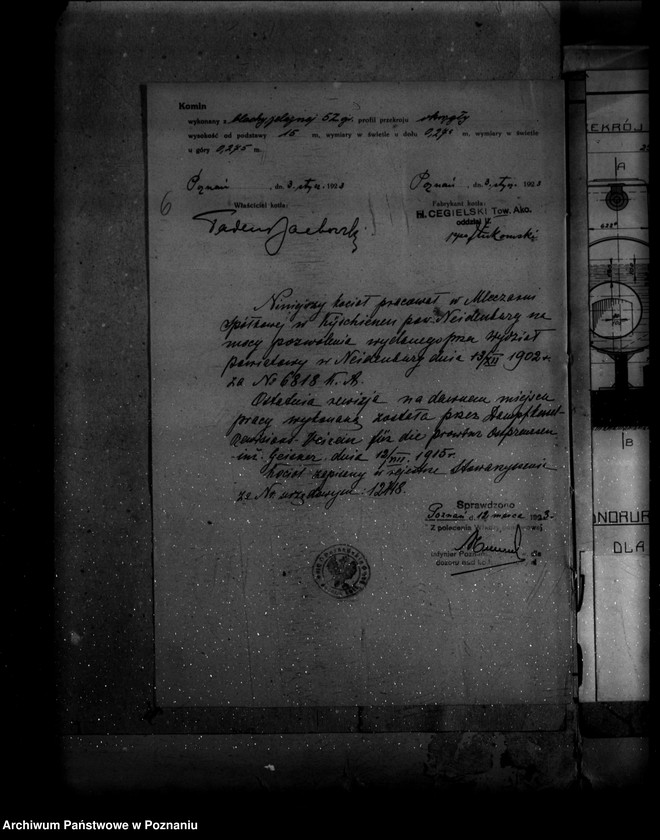 Komin
wykonany z blachy żelaznej 52 gr. profil przekroju okrągły
wysokość od podstawy 15 m, wymiary w świetle u dołu 0,275 m, wymiary w świetle
u góry 0,275 m.
Poznań, dn. 3. stycz. 1923
Poznań, dn. 3. stycz. 1923
Właściciel kotła:
Fabrykant kotła:
6
Tadeusz
H. CEGIELSKI Tow. Akc.
oddział
Niniejszy kocioł pracował w Mleczarni
Spółkowej w pow. Neidenburg na
mocy pozwolenia wydanego przez Wydział
powiatowy w Neidenburg dnia 13/XII 1902 r.
za No 6818 K. A.
Ostatnia rewizja na dawnem miejscu
pracy wykonaną została przez Dampfkessel-
Verein für die Provinz Ostpreussen
inż. Geisler dnia 12/VII. 1915 r.
Kocioł zapisany w rejestrze Stowarzyszenia
za No urzędowym 12418.
Sprawdzono
Poznań d. 12 marca 1923.
Z polecenia Władzy
Inżynier
dozoru nad
EKRÓJ
A
B
NORUR
DLA
Archiwum Państwowe w Poznaniu